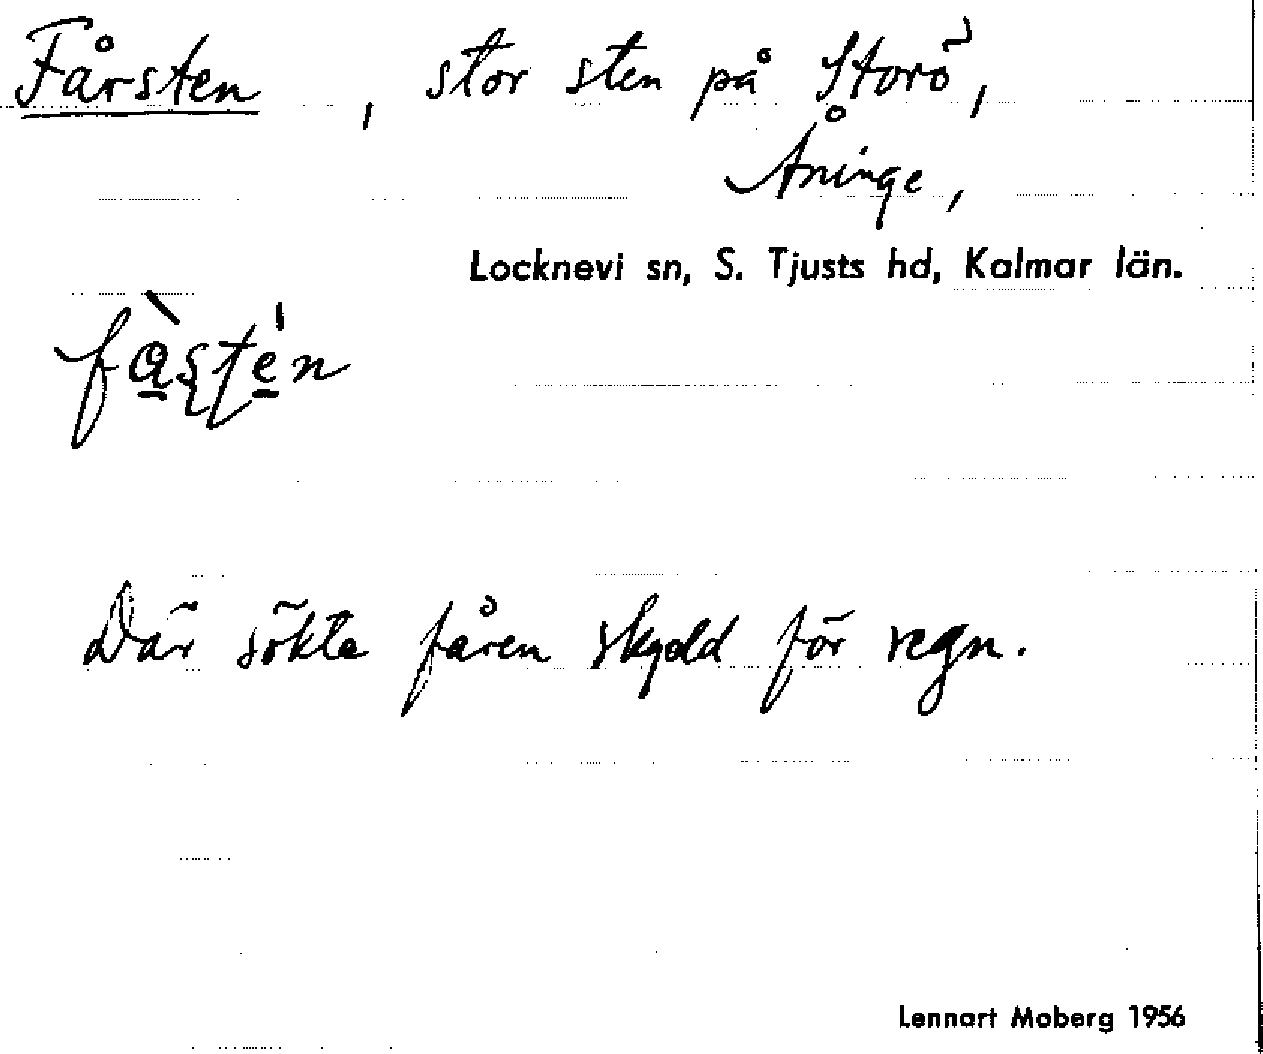 Fårsten, stor sten på Storö,
Åninge,
Locknevi sn, S. Tjusts hd, Kalmar län.
Där sökte fåren skydd för regn.
Lennart Moberg 1956